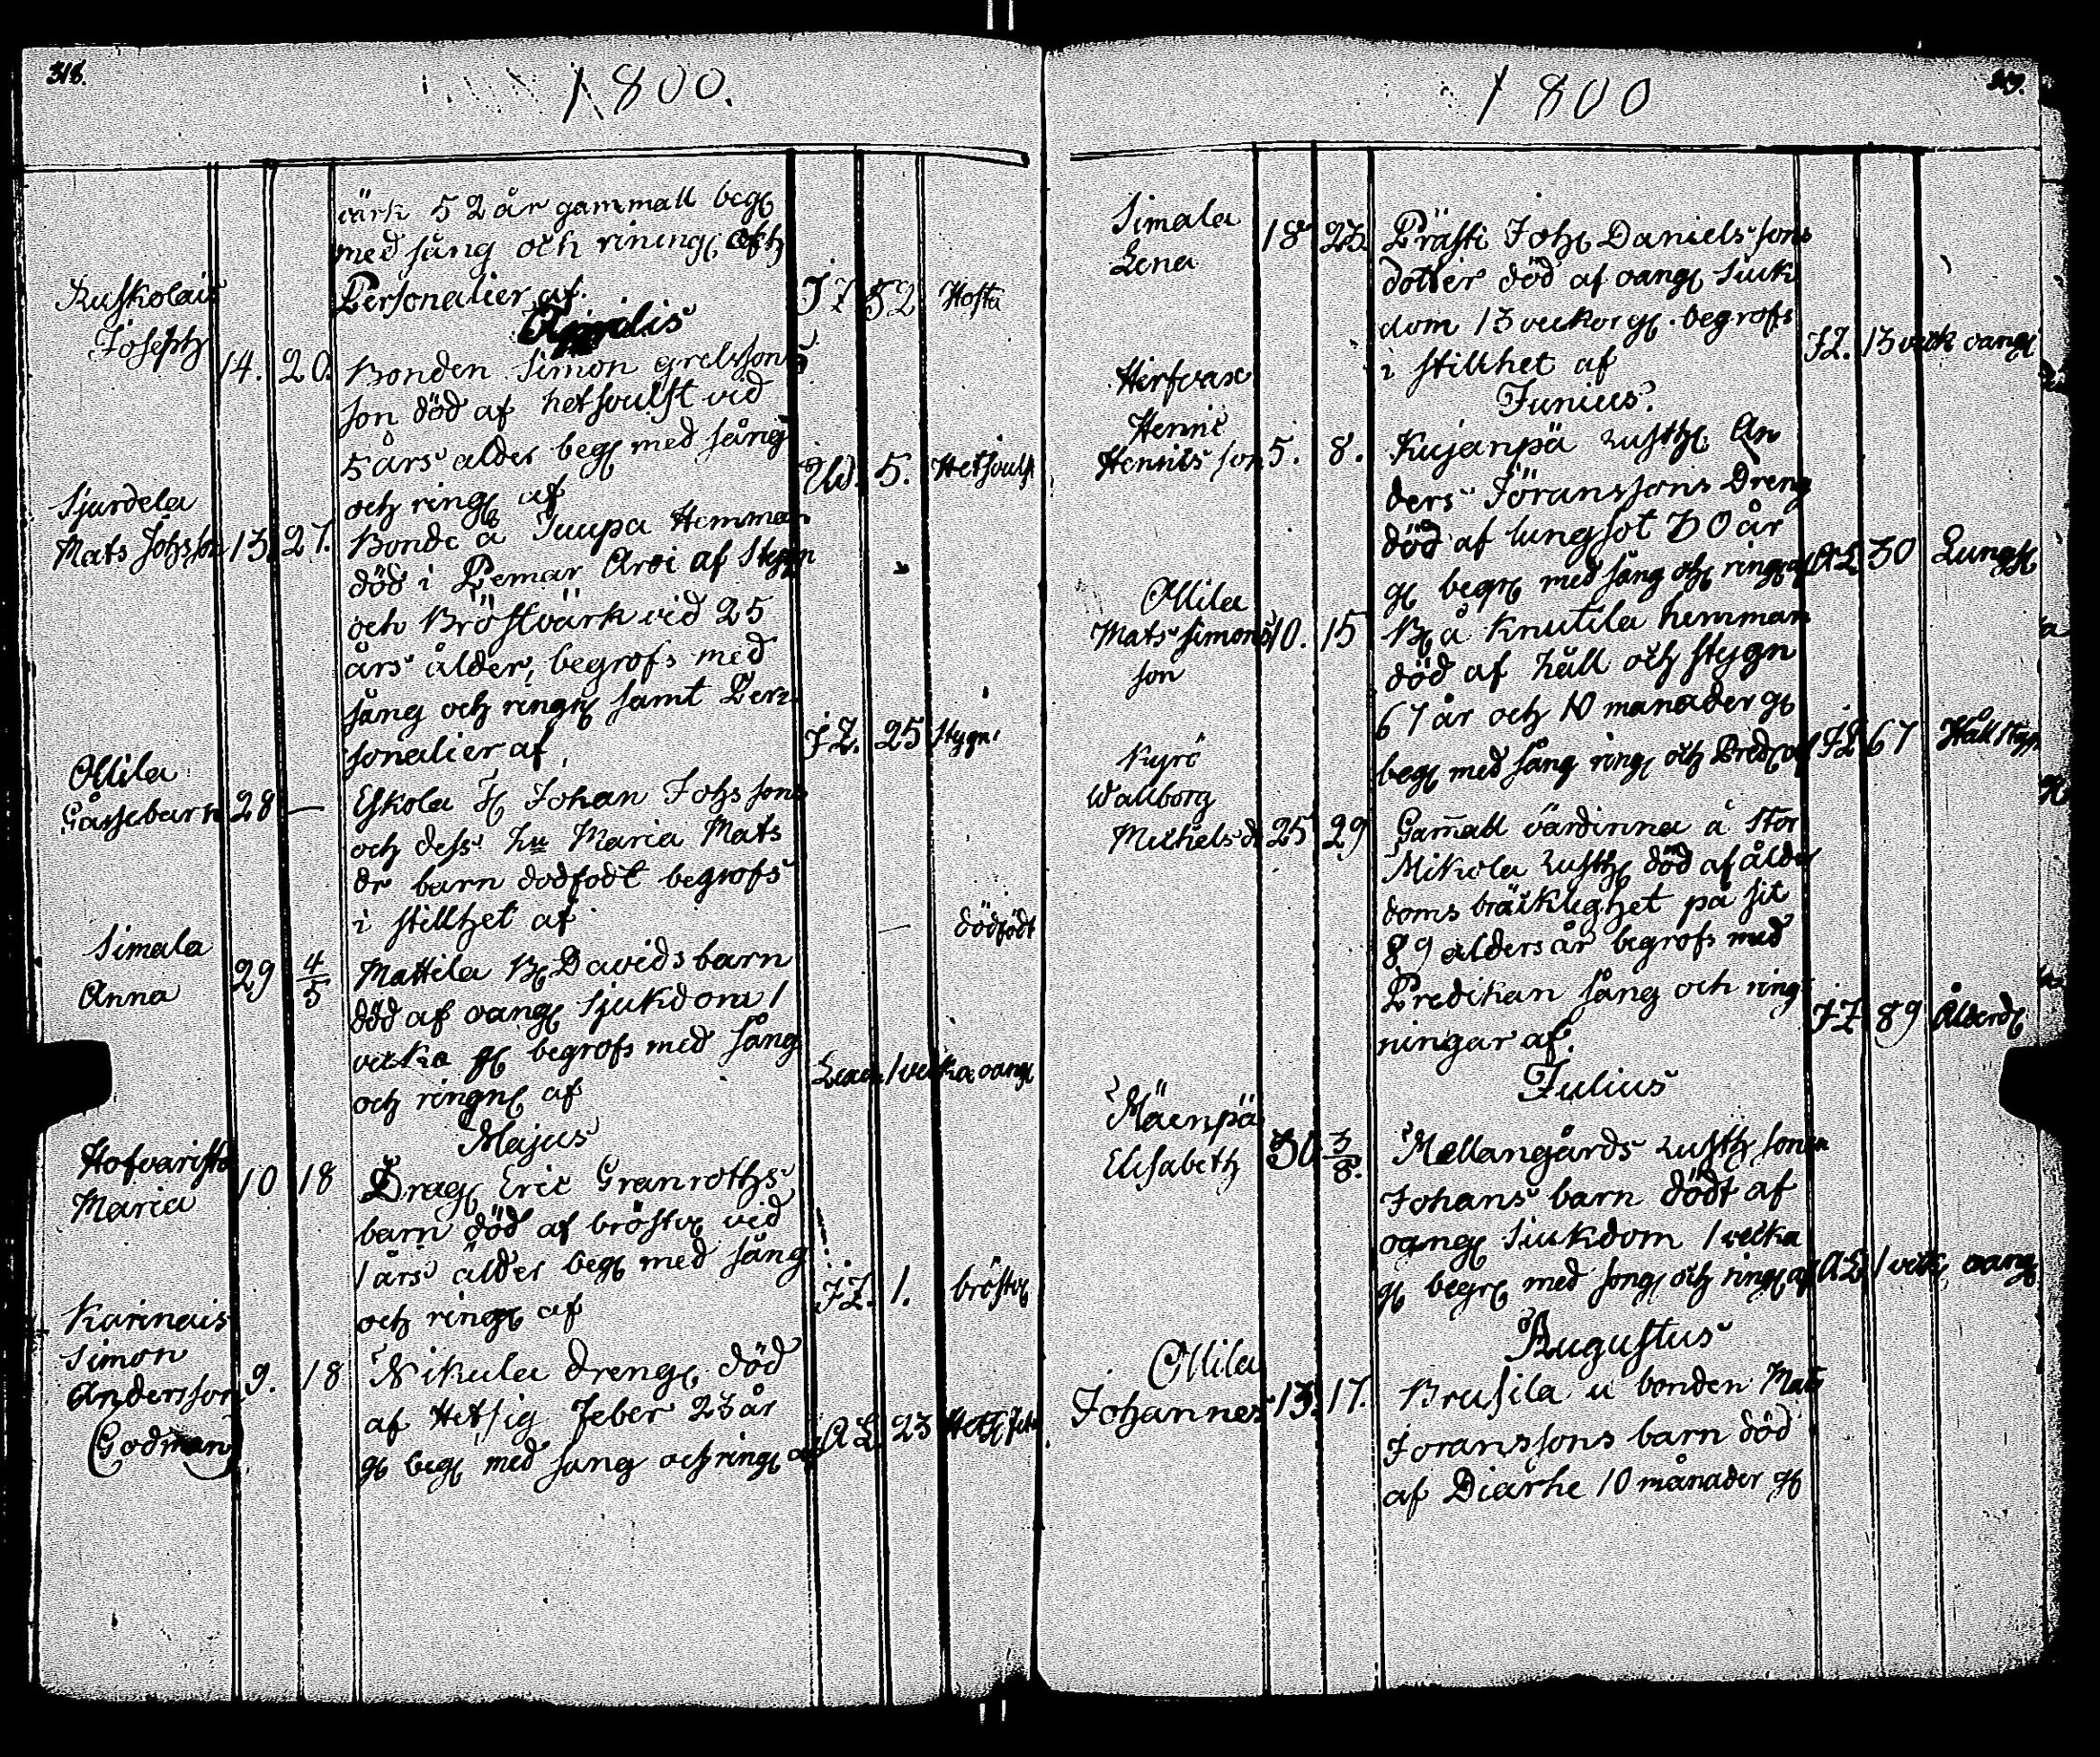 318.
1800.
värk 52 år gammall beg
med sång och rining och
Personalier af. J Z 52 Hosta
Aprilis
Kuskolais
Joseph 14. 20. Bonden Simon grelssons
son död af hetsvulst vid
5 års ålder beg med sång
och ring af 5. Hetsvulst
Sjurdela
Mats Johsson 13. 27. Bonde å Juupa Hemman
död i Pemar Arvi af Stygn
och Bröstvärk vid 25
års ålder, begrofs med
sång och ring samt Per-
sonalier af J Z. 25 Stygn.
Ollila
Gåssebarn 28 — Eskola Johan Johssons
och dess hu Maria Mats
dr barn dödfödt begrofs
i stillhet af — dödfödt
Simala
Anna 29 4/5 Mattila B Davids barn
död af oang Sjukdom 1
vecka g begrofs med sång
och ringn af 1 vecka oang
Majus
Hofvarista
Maria 10 18 Drag Eric Granroths
barn död af bröstv vid
1 års ålder beg med sång
och ring af J Z. 1. bröstv
Karinais
Simon
Andersson 9. 18 Nikula dreng död
Godman af Hetsig Feber 23 år
g beg med sång och ring af A L 23 Hets feb
1800
Simala
Lena 18 23. Prästi Joh Danielssons
dotter död af oang Siuk
dom 13 veckor g. begrofs
i stillhet af J Z. 13 veck oang
Junius.
Hirfvax
Henric
Henricsson 5. 8. Kujanpä rusth An
ders Jöranssons Dreng
död af lungsot 30 år
g begr med sång och ring af A L 30 Lungs
Ollila
Mats Simons
son 10. 15 B å Knutila hemman
död af håll och stygn
67 år och 10 månader g
beg med sång ring och Pred af J Z 67 Håll styn
Kyrö
Wallborg
Michels dr 25 29 Gamall värdinna å Stor
Mikola rusth död af ålder
doms bräcklighet på sit
89 alders år begrofs med
Predikan sång och ring
ningar af. J Z 89 Ålderd
Julius
Mäenpä
Elisabeth 30 3/8. Mellangårds rusth sonen
Johans barn dödt af
oang Siukdom 1 vecka
g begr med song och ring af A L 1 veck oang
Augustus
Ollila
Johannes 13. 17. Brusila u bonden Mats
Joranssons barn död
af Diarhe 10 månader g